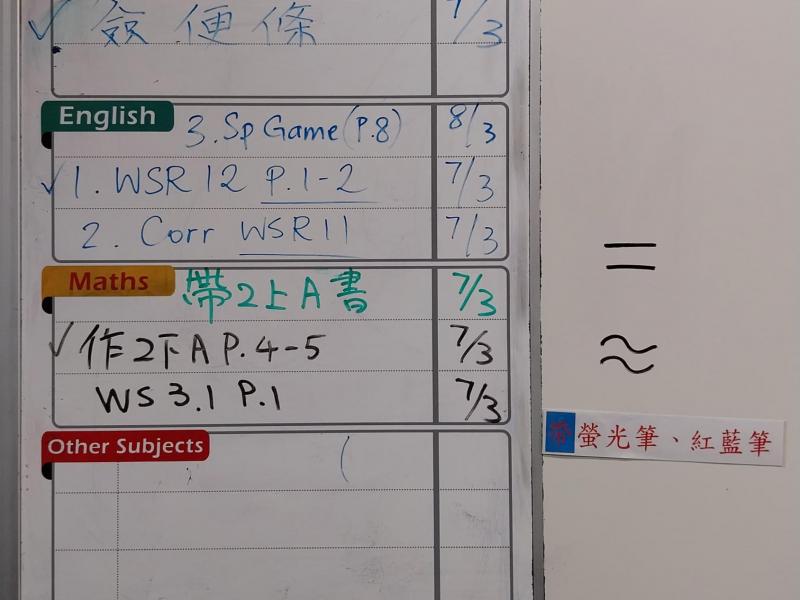 ✓ 簽便條 7/3
English 3. Sp Game (P.8) 8/3
✓ 1. WSR 12 P.1-2 7/3
2. Corr WSR11 7/3
Maths 帶2上A書 7/3
✓ 作2下A P.4-5 7/3
WS 3.1 P.1 7/3
Other Subjects (
=
≈
螢光筆、紅藍筆